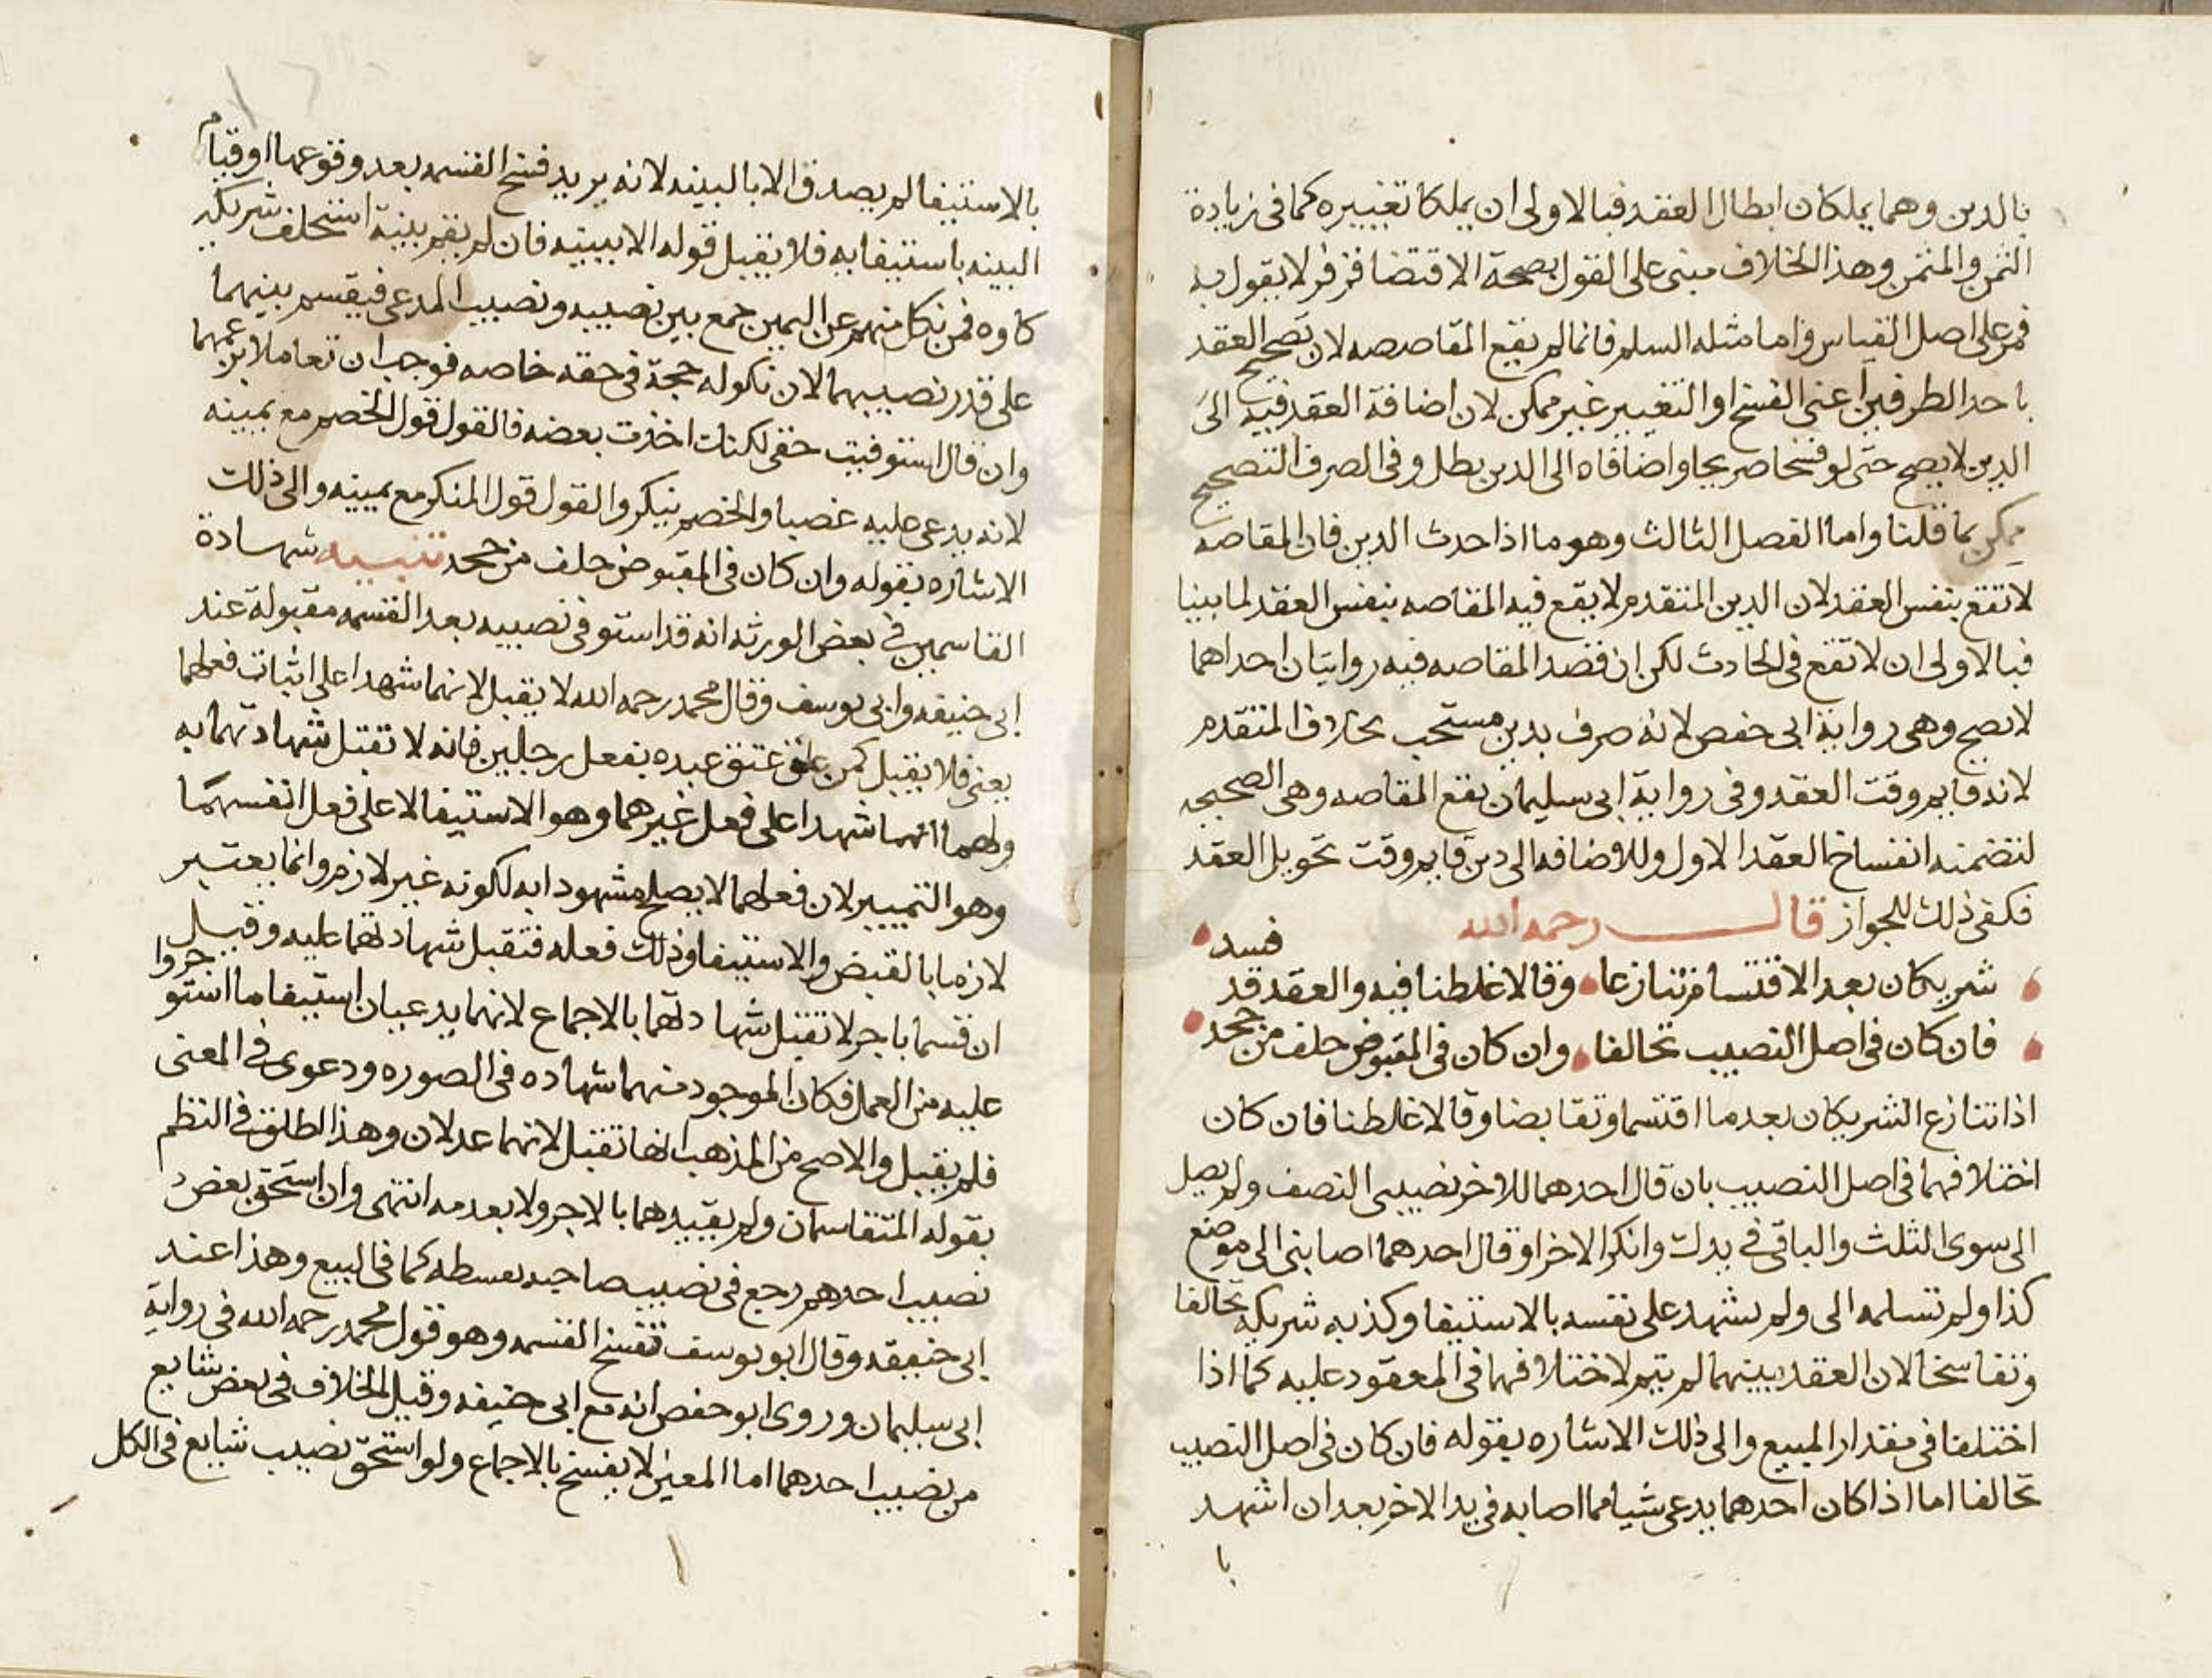 بالدين وهما يملكان ابطال العقد فبالاولى ان يملكا تغييره كما فى زيادة
الثمن والمثمن وهذا الخلاف مبنى على القول بصحة الاقتضا فزفر لا يقول به
فمر على اصل القياس واما مثله السلم فانما لم يقع المقاصصه لان تصحيح العقد
باحد الطرفين اعنى الفسخ او التغيير غير ممكن لان اضافة العقد فيه الى
الدين لا يصح حتى لو فسخا صريحا واضافاه الى الدين بطل وفى الصرف التصحيح
ممكن بما قلنا واما الفصل الثالث وهو ما اذا حدث الدين فان المقاصه
لا تقع بنفس العقد لان الدين المتقدم لا يقع فيه المقاصه بنفس العقد لما بينا
فبالاولى ان لا تقع فى الحادث لكن ان قصد المقاصه فيه روايتان احداهما
لا يصح وهى رواية ابى حفص لانه صرف بدين مستحب بخلاف المتقدم
لانه قايم وقت العقد وفى رواية ابى سليمان تقع المقاصه وهى الصحيحه
لتضمنه انفساخ العقد الاول وللاضافه الى دين قايم وقت تحويل العقد
فكفى ذلك للجواز قال رحمه الله
شريكان بعد الاقتسام تنازعا وقالا غلطنا فيه والعقد قد فسد
فان كان فى اصل النصيب تحالفا وان كان فى المقبوض حلف من جحد
اذا تنازع الشريكان بعد ما اقتسما وتقابضا وقالا غلطنا فان كان
اختلافهما فى اصل النصيب بان قال احدهما للاخر نصيبى النصف ولم يصل
الى سوى الثلث والباقى فى يدك وانكر الاخر او قال احدهما اصابنى الى موضع
كذا ولم تسلمه الى ولم يشهد على نفسه بالاستيفا وكذبه شريكه تحالفا
وتفاسخا لان العقد بينهما لم يتم لاختلافهما فى المعقود عليه كما اذا
اختلفا فى مقدار المبيع والى ذلك الاشاره بقوله فان كان فى اصل النصيب
تحالفا اما اذا كان احدهما يدعى شيا مما اصابه فى يد الاخر بعد ان اشهد
با
بالاستيفا لم يصدق الا بالبينه لانه يريد فسخ القسمه بعد وقوعها او قيام
البينه باستيفايه فلا يقبل قوله الا ببينه فان لم يقم بينة استحلف شريكه
كاوه فمن نكل منهم عن اليمين جمع بين نصيبه ونصيب المدعى فيقسم بينهما
على قدر نصيبهما لان نكوله حجة فى حقه خاصه فوجب ان تعاملا بزعمهما
وان قال استوفيت حقى لكنك اخذت بعضه فالقول قول الخصم مع يمينه
لانه يدعى عليه غصبا والخصم ينكر والقول قول المنكر مع يمينه والى ذلك
الاشاره بقوله وان كان فى المقبوض حلف من جحد تنبيه شهادة
القاسمين فى بعض الورثه انه قد استوفى نصيبه بعد القسمه مقبولة عند
ابى حنيفه وابى يوسف وقال محمد رحمه الله لا يقبل لانهما شهدا على اثبات فعلهما
يعنى فلا يقبل كمن علق عتق عبده بفعل رجلين فانه لا تقبل شهادتهما به
ولهما انهما شهدا على فعل غيرهما وهو الاستيفا لا على فعل انفسهما
وهو التمييز لان فعلهما لا يصلح مشهودا به لكونه غير لازم وانما يعتبر
لازما بالقبض والاستيفا وذلك فعله فتقبل شهادتهما عليه وقيل
ان قسما باجر لا تقبل شهادتهما بالاجماع لانهما يدعيان استيفا ما استوجروا
عليه من العمل فكان الموجود منهما شهاده فى الصوره ودعوى فى المعنى
فلم يقبل والاصح من المذهب انها تقبل لانهما عدلان وهذا اطلق فى النظم
بقوله المتقاسمان ولم يقيدهما بالاجر ولا بعدمه انتهى وان استحق بعض
نصيب احدهم رجع فى نصيب صاحبه بقسطه كما فى البيع وهذا عند
ابى حنيفه وقال ابو يوسف تفسخ القسمه وهو قول محمد رحمه الله فى رواية
ابى سليمان وروى ابو حفص انه مع ابى حنيفه وقيل الخلاف فى بعض شايع
من نصيب احدهما اما المعين لا يفسخ بالاجماع ولو استحق نصيب شايع فى الكل